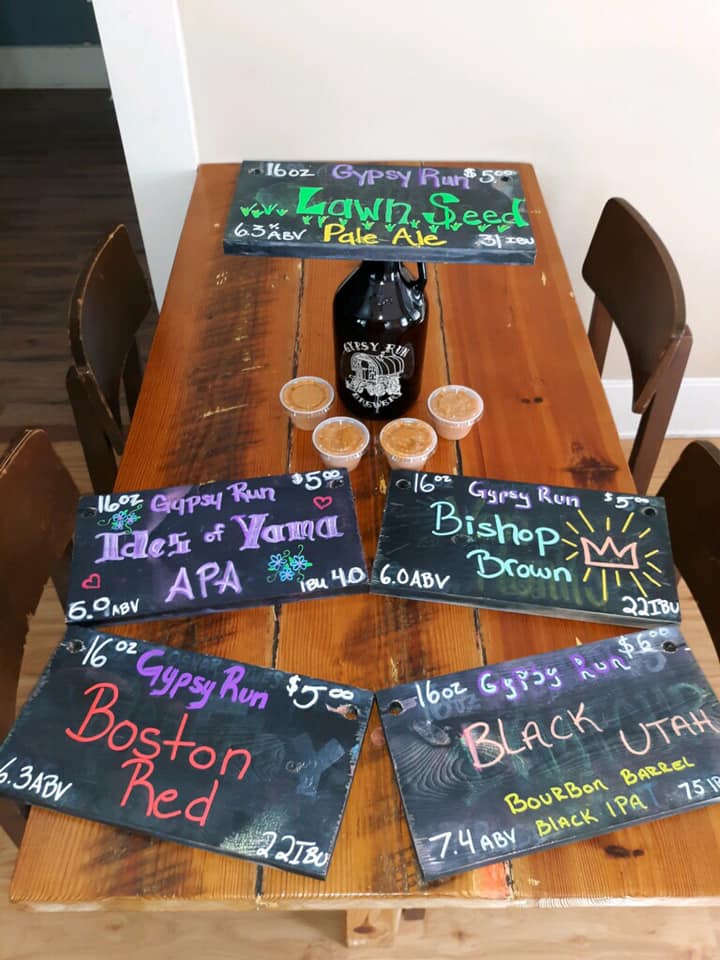 16oz Gypsy Run $5.00
Lawn Seed
6.3% ABV Pale Ale 31 IBU
GYPSY RUN
BREWERY
16oz Gypsy Run $5.00
Ides of Yama
APA
5.9 ABV IBU 40
16oz Gypsy Run $5.00
Bishop
Brown
6.0 ABV 22 IBU
16oz Gypsy Run $5.00
Boston
Red
6.3 ABV 22 IBU
16oz Gypsy Run $6.00
BLACK UTAH
BOURBON BARREL
BLACK IPA
7.4 ABV 75